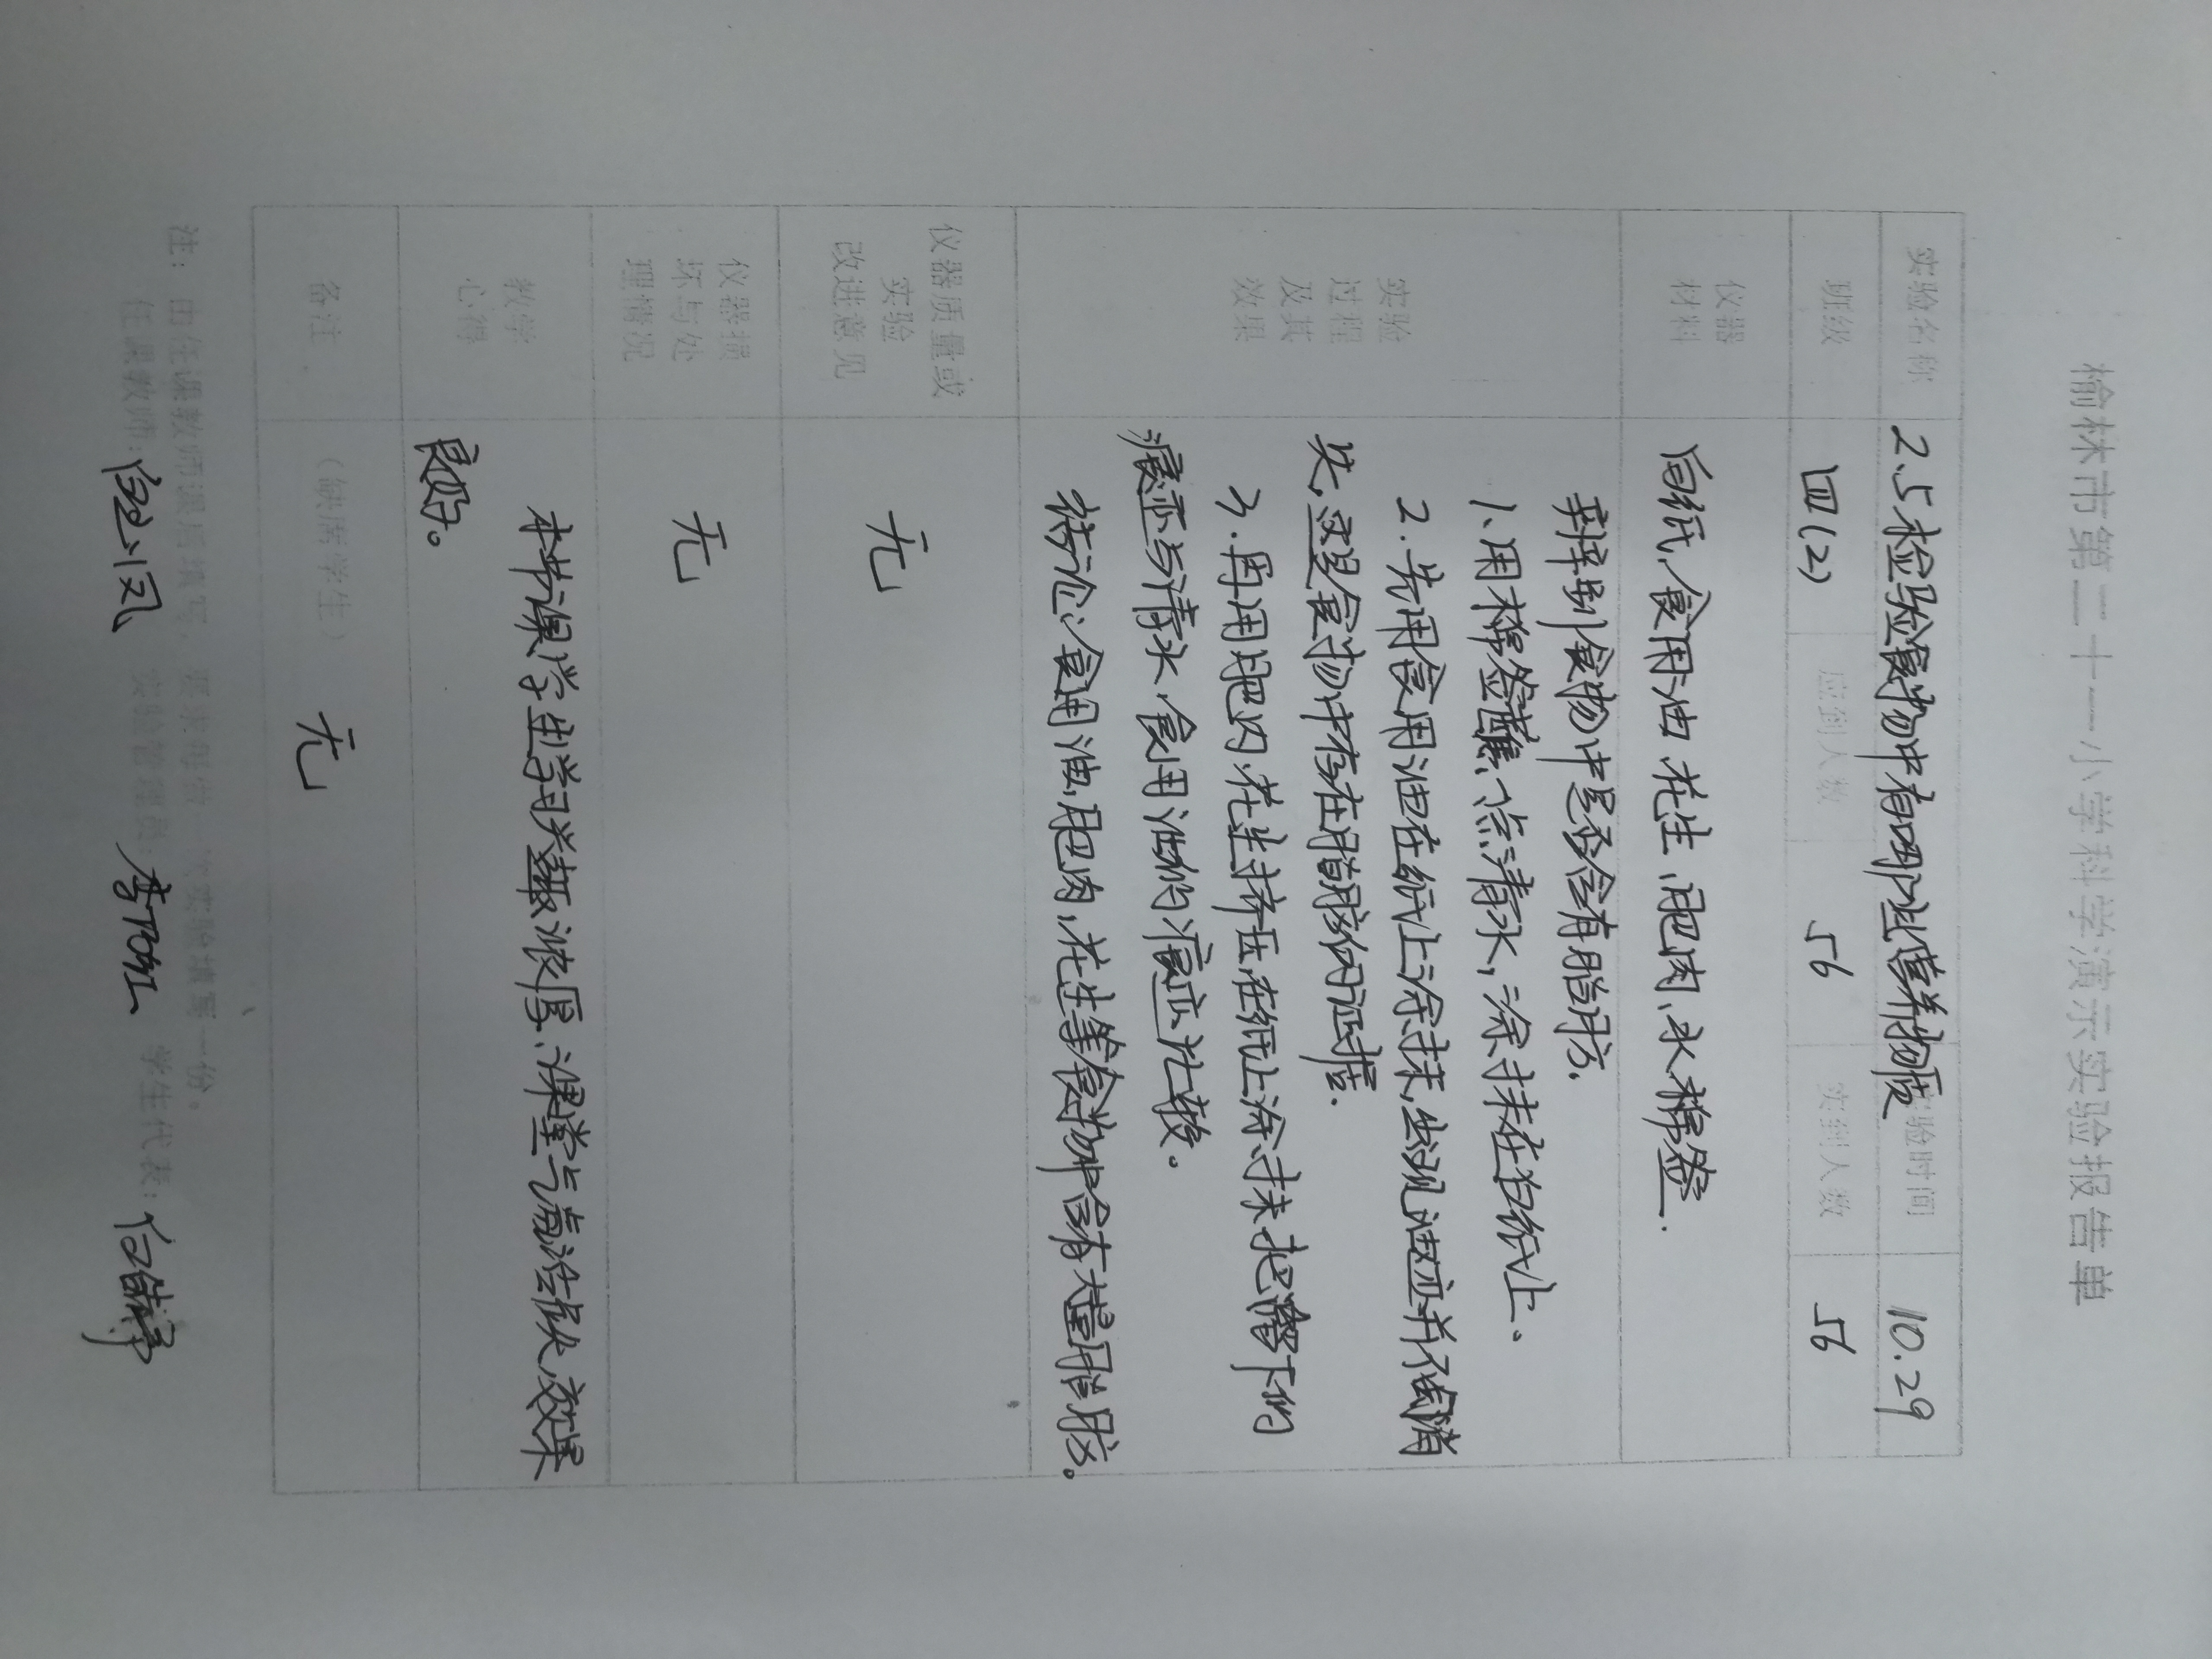 榆林市第二十一小学科学演示实验报告单
实验名称 2.5检验食物中有哪些营养物质 实验时间 10.29
班级 四(2) 应到人数 56 实到人数 56
仪器材料 白纸、食用油 花生、肥肉、水 棉签.
实验过程及其效果
辨别食物中是否含有脂肪.
1、用棉签蘸一点清水，涂抹在白纸上、
2.先用食用油在纸上涂抹,出现油迹并不会消
失,这是食物中存在脂肪的证据.
3.再用肥肉、花生挤压在纸上涂抹把留下的
痕迹与清水、食用油的痕迹比较。
结论:食用油,肥肉,花生等食物中含有大量脂肪。
仪器质量或实验改进意见 无
仪器损坏与处理情况 无
教学心得
本节课学生学习兴趣浓厚、课堂气氛活跃、效果
良好。
备注 (缺席学生) 无
注：由任课教师课后填写，要求每做一次实验填写一份。
任课教师： 实验管理员： 学生代表：